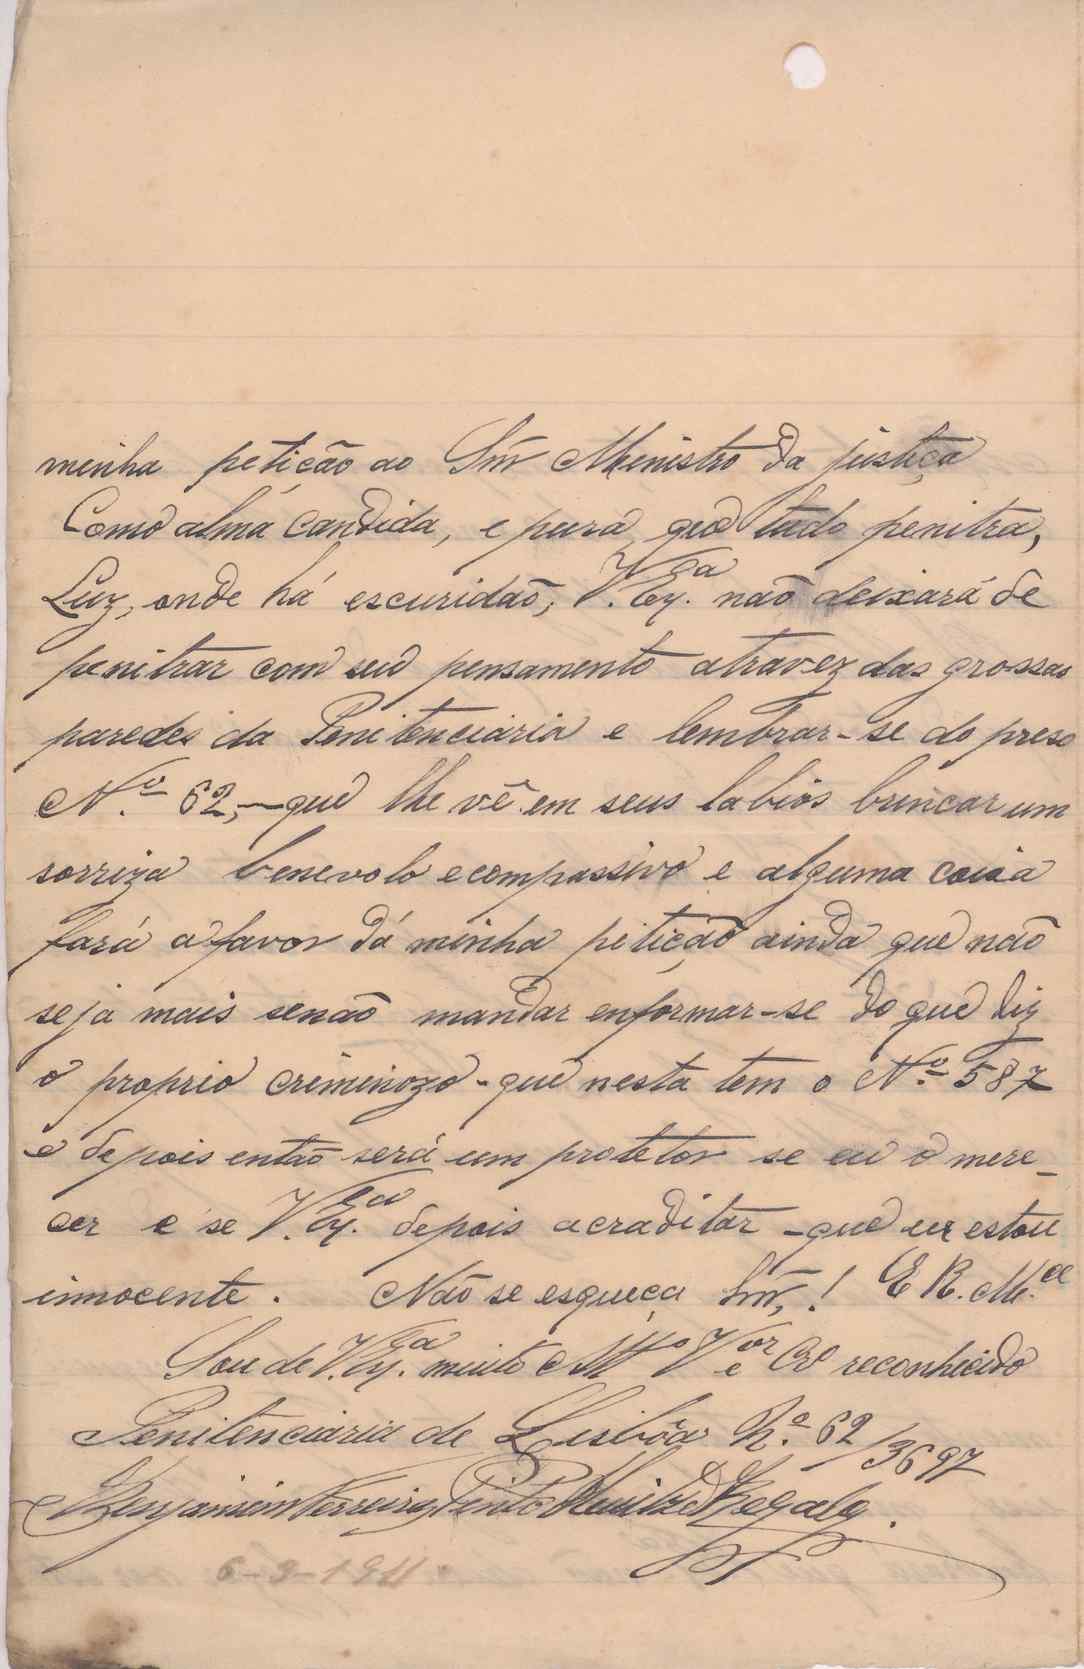 minha petição ao Snr Menistro da justiça
Como alma candida, e pura, que tudo penitra,
Luz, onde há escuridaõ, V. Exª. naõ deixará de
penitrar com seu pensamento atravez das grossas
paredes da Penitenciaria e lembrar-se do preso
Nº. 62, - que lhe vê em seus labios brincar um
sorriza benevolo e compassivo e alguma coisa
fará a favor dá minha pitição ainda que não
seja mais senaõ mandar enformar-se do que diz
o proprio criminozo - que nesta tem o Nº. 587
e depois entaõ será um protetor se eu o mere-
cer e se V. Exª. depois acraditar - que eu estou
innocente. Não se esqueça Snr,! E R. M.ce
Sou de V. Exª. muito Mto Vor e Cro reconhecido
Penitenciaria de Lisbôa Nº. 62/3697
Benjamim Ferreira Pinto
6-3-1911